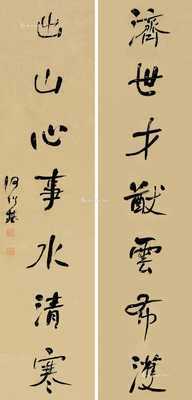 濟世才猷雲布濩
出山心事水清寒
何紹基